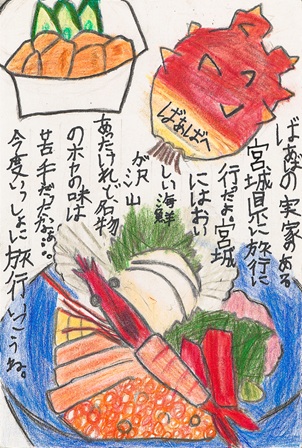 ばあばへ
ばぁばの実家のある
宮城県に旅行に
行ったよ。宮城
にはおい
しい海鮮
が沢山
あったけれど、名物
のホヤの味は
苦手だったなぁ…。
今度いっしょに旅行いこうね。